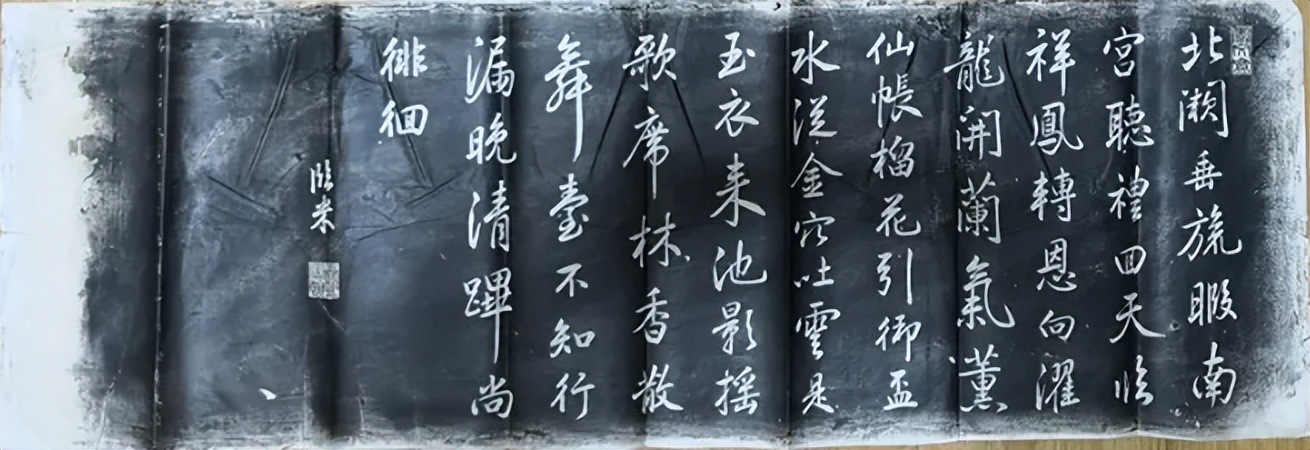 北濒垂旒暇南
宮聽禮回天临
祥鳳轉恩向濯
龍開蘭氣薰
仙帳榴花引御盃
水從金穴吐雲是
玉衣来池影摇
歌席林香散
舞臺不知行
漏晚清蹕尚
徘徊
临米